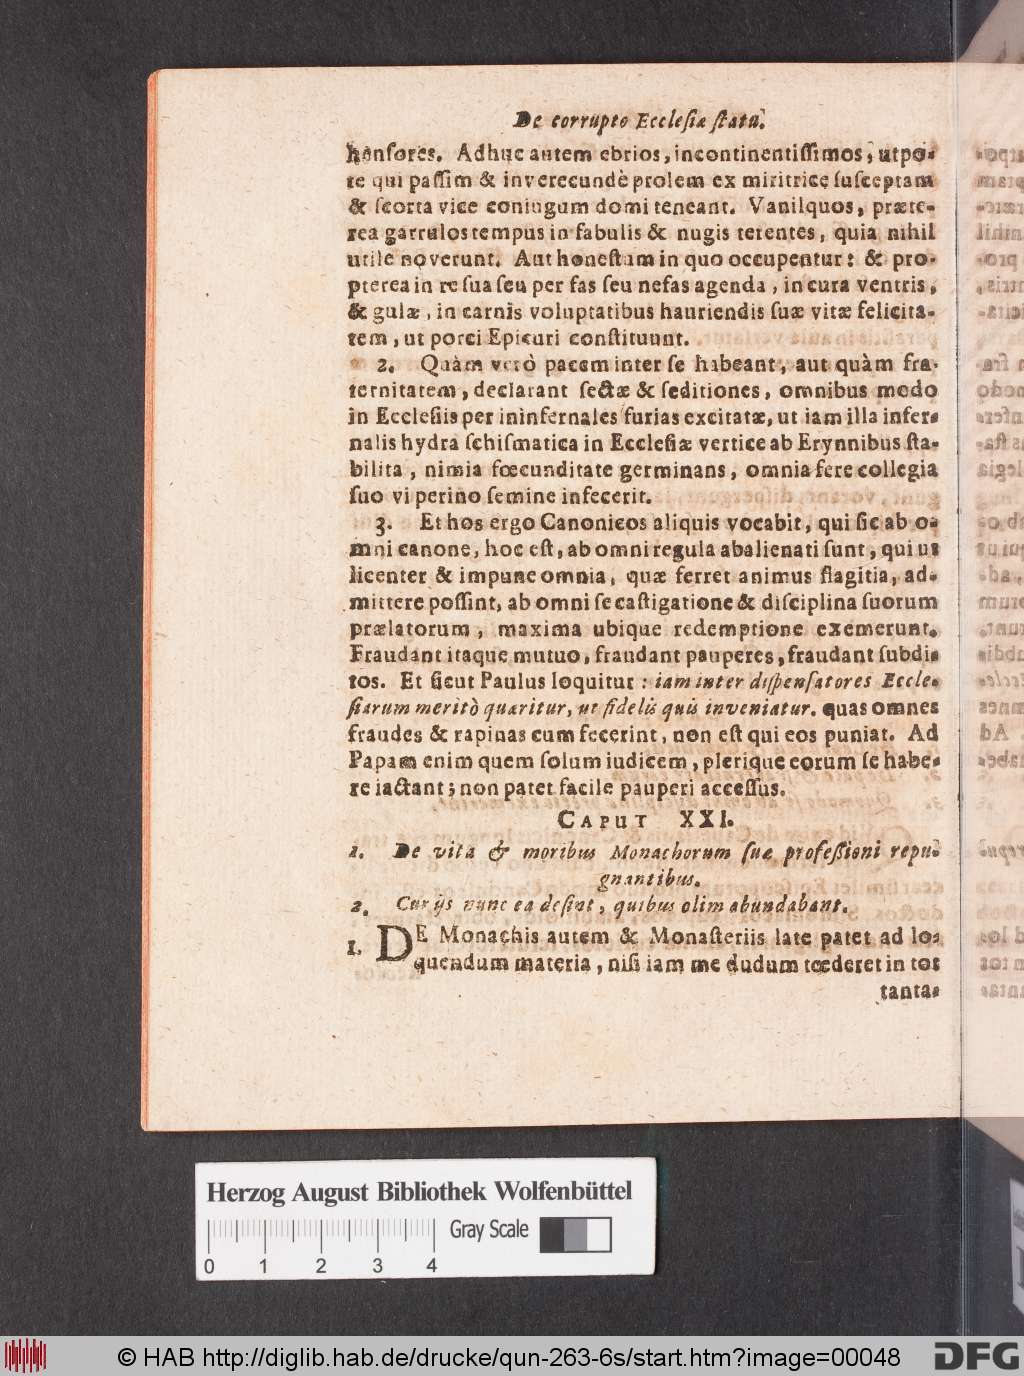 De corrupto Ecclesiæ statu.
hensores. Adhuc autem ebrios, incontinentissimos, utpo-
te qui passim & inverecundè prolem ex miritrice susceptam
& scorta vice coniugum domi teneant. Vanilquos, præte-
rea garrulos tempus in fabulis & nugis terentes, quia nihil
utile noverunt. Aut honestum in quo occupentur: & pro-
pterea in re sua seu per fas seu nefas agenda, in cura ventris,
& gulæ, in carnis voluptatibus hauriendis suæ vitæ felicita-
tem, ut porci Epicuri constituunt.
2. Quàm verò pacem inter se habeant, aut quàm fra-
ternitatem, declarant sectæ & seditiones, omnibus modo
in Ecclesiis per ininfernales furias excitatæ, ut iam illa infer-
nalis hydra schismatica in Ecclesiæ vertice ab Erynnibus sta-
bilita, nimia fœcunditate germinans, omnia fere collegia
suo viperino semine infecerit.
3. Et hos ergo Canonicos aliquis vocabit, qui sic ab o-
mni canone, hoc est, ab omni regula abalienati sunt, qui ut
licenter & impune omnia, quæ ferret animus flagitia, ad-
mittere possint, ab omni se castigatione & disciplina suorum
prælatorum, maxima ubique redemptione exemerunt.
Fraudant itaque mutuo, fraudant pauperes, fraudant subdi-
tos. Et sicut Paulus loquitur: iam inter dispensatores Eccle-
siarum meritò quæritur, ut fidelis quis inveniatur. quas omnes
fraudes & rapinas cum fecerint, non est qui eos puniat. Ad
Papam enim quem solum iudicem, plerique eorum se habe-
re iactant; non patet facile pauperi accessus.
CAPUT XXI.
1. De vita & moribus Monachorum suæ professioni repu-
gnantibus.
2. Cur ijs nunc ea desint, quibus olim abundabant.
1. DE Monachis autem & Monasteriis late patet ad lo-
quendum materia, nisi iam me dudum tœderet in tot
tanta-
Herzog August Bibliothek Wolfenbüttel
Gray Scale
0 1 2 3 4
© HAB http://diglib.hab.de/drucke/qun-263-6s/start.htm?image=00048
DFG